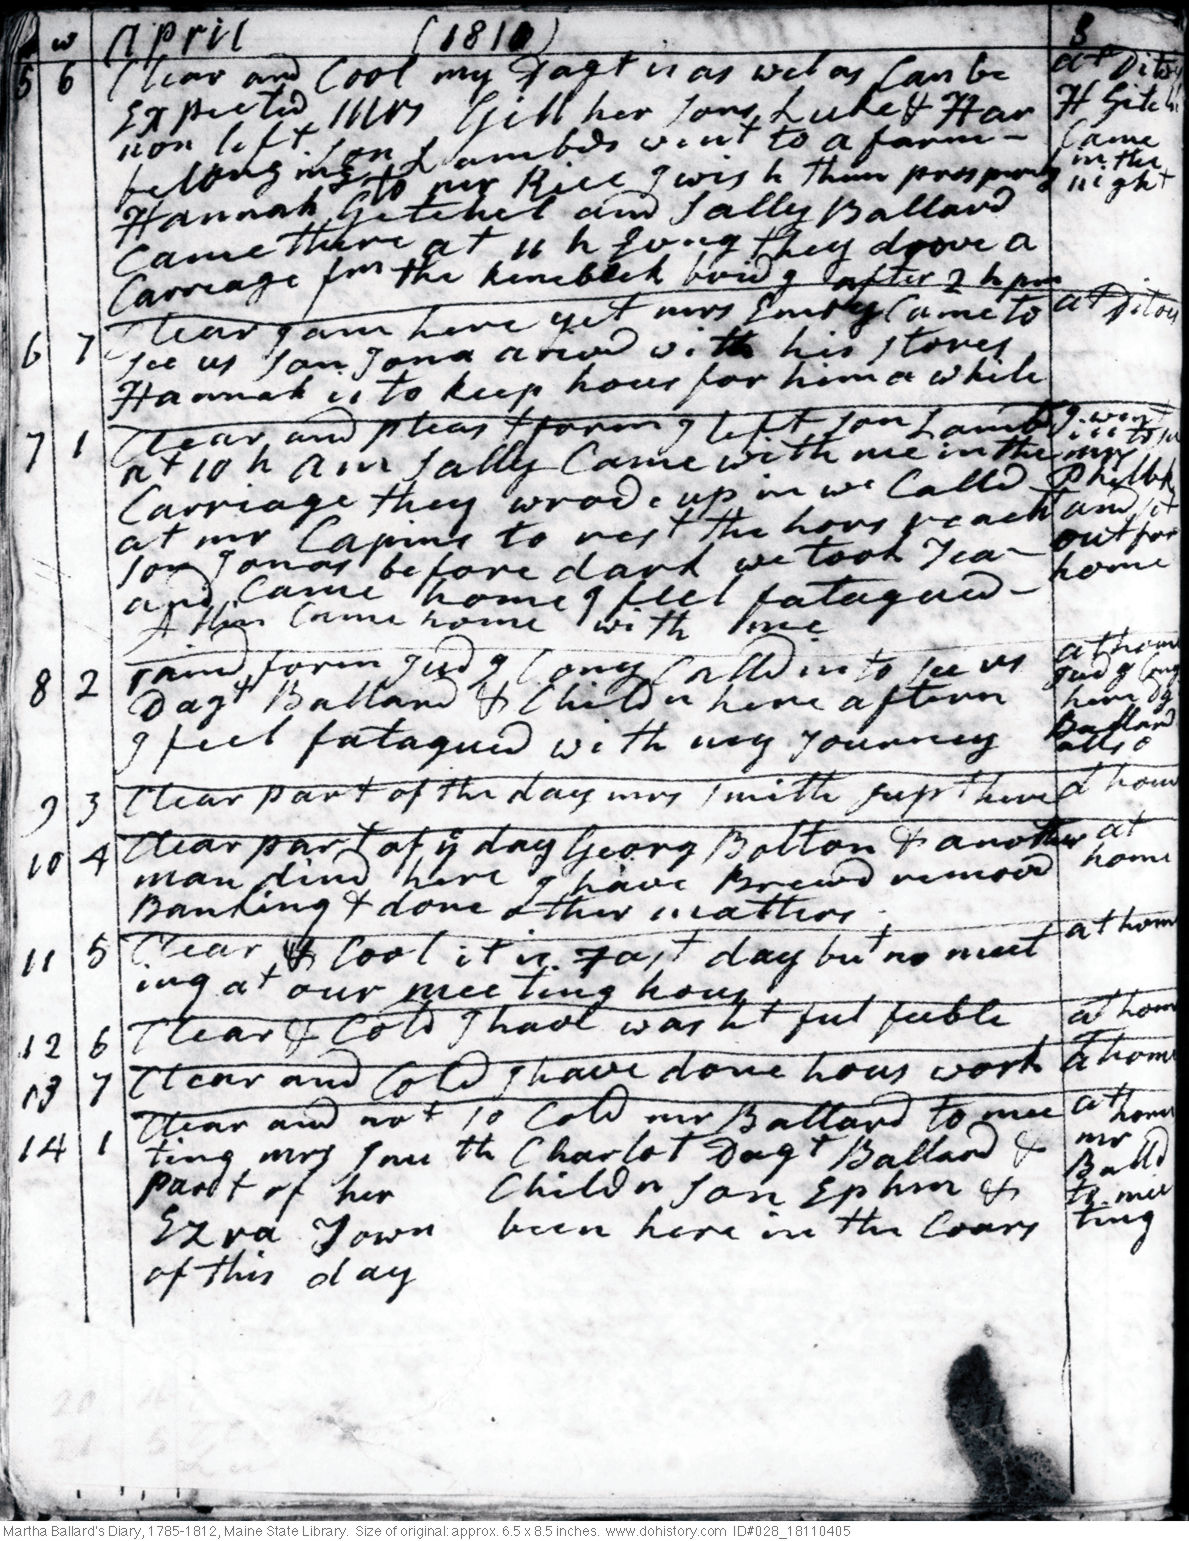 w April (1811) 3
5 6 Clear and Cool my Dagt is as wel as Can be at Ditoes
Expected Mrs Gill her sons Luke & Har H Getch
non left son Lambds went to a farm Came
belonging to mr Rice I wish them prosperity in the
Hannah Getchel and Sally Ballard night
Came there at 11 h Evng they drove a
Carreage fm the kenebeck bridg after 2 h pm
6 7 Clear I am here yet mrs Emry Came to at Ditoes
see us son Jona arivd with his stores
Hannah is to keep hous for him a while
7 1 Clear and pleast forin I left son Lambds I went
at 10 h Am Sally Came with me in the in to see mrs
Carriage they wrode up in we Calld Philbk
at mr Capins to rest the hors reacht and sett
son Jonas before dark we took Tea out for
and Came home I feel fatagued home
Came home with me
8 2 raind forin Judg Cony Calld in to see us at home
Dagt Ballard & Childn here aftern Judg Cony
I feel fatagued with my Journey here Dgt
Ballard
allso
9 3 Clear part of the day mrs Smith supt here at home
10 4 Clear part of ye day Georg Bolton & another at
man dind here I have Brewd removd home
Banking & done other matters
11 5 Clear & Cool it is Fast day but no meet at home
ing at our meeting hous
12 6 Clear & Cold I have washt feel feeble at home
13 7 Clear and Cold I have done hous work at home
14 1 Clear and not so Cold mr Ballard to mee at home
ting mrs Smith Charlot Dagt Ballard & mr
part of her Childn son Ephm & Balld
Ezra Town been here in the Coars to mee
of this day ting
Martha Ballard's Diary, 1785-1812, Maine State Library. Size of original: approx. 6.5 x 8.5 inches. www.dohistory.com ID#028_18110405